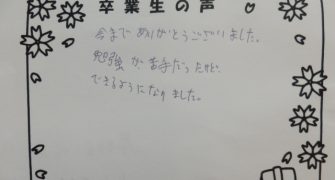 卒業生の声
今まで ありがとうございました。
勉強 が 苦手だったけど、
できるようになりました。